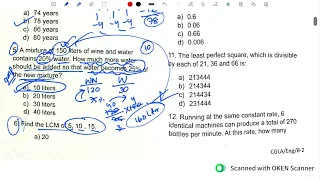 a) 74 years
b) 78 years
c) 76 years
d) 84 years
78
5. A mixture of 150 liters of wine and water
contains 20% water. How much more water
should be added so that water becomes 25% of
the new mixture?
a) 10 liters
b) 20 liters
c) 30 liters
d) 40 liters
10
120
30
6. Find the LCM of 5, 10, 15.
a) 20
a) 0.6
b) 0.66
c) 0.06
d) 0.006
11. The least perfect square, which is divisible
by each of 21, 36 and 66 is:
a) 213444
b) 214344
c) 214434
d) 231444
12. Running at the same constant rate, 6
identical machines can produce a total of 270
bottles per minute. At this rate, how many
CGLA/Eng/B-2
CS Scanned with OKEN Scanner